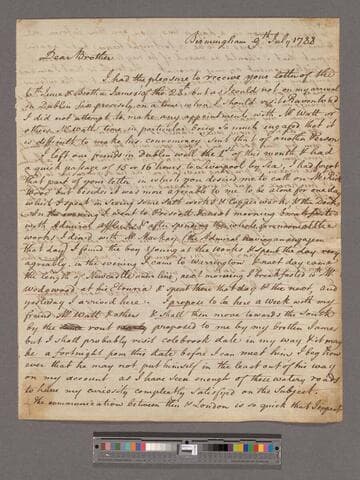 Birmingham 9th July 1788
Dear Brother
I had the pleasure to receive your letter of the
6th June & Brother James's of the 28. but as I could not on my arrival
in Dublin fix precisely on a time when I should
I did not attempt to make any appointments with Mr Watt or
others. Mr Watts time in particular being so much engaged that it
is difficult to make his conveniency suit that of another Person
I left our friends in Dublin well the 1st of this month & had
a quick passage of 15 or 16 hours to Liverpool by sea. I had forgot
that part of your letter in which you desired me to call on Mr
but besides it was more agreeable to me to be alone for one day
which I spent in seeing some Salt works & Copper work, & the Docks
In the evening I went to Prescott & next morning breakfasted
with after spending the whole forenoon at the
works I dined with Mr Mackay (the Admiral having company
that day) found the boy going at the works & spent the day very
agreeably, in the evening I came to Warrington & next day came
the length of Newcastle under line, next morning I breakfasted with Mr
Wedgwood at his Etruria & spent there that day & the next, and
yesterday I arrived here. I propose to be here a week with my
friend Mr Watt & others & shall then move towards the South
by the rout proposed to me by my brother James
but I shall probably visit colebrook dale in my way & it may
be a fortnight from this date before I can meet him I beg how
ever that he may not put himself in the least out of his way
on my account as I have seen enough of these watery roads
to have my curiosity compleatly satisfied on the subject.
The communication between this & London is so quick that I expect